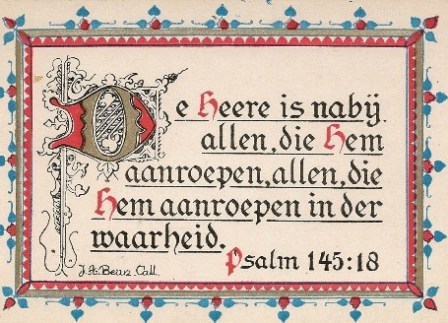 De Heere is nabij
allen, die Hem
aanroepen, allen, die
Hem aanroepen in der
waarheid.
Psalm 145:18